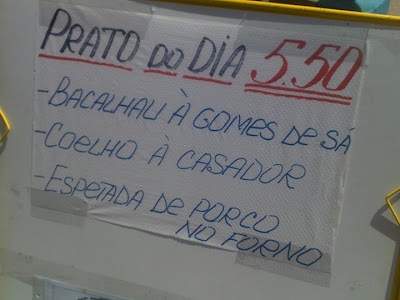 PRATO DO DIA 5.50
- BACALHAU À GOMES DE SÁ
- COELHO À CASADOR
- ESPETADA DE PORCO
NO FORNO